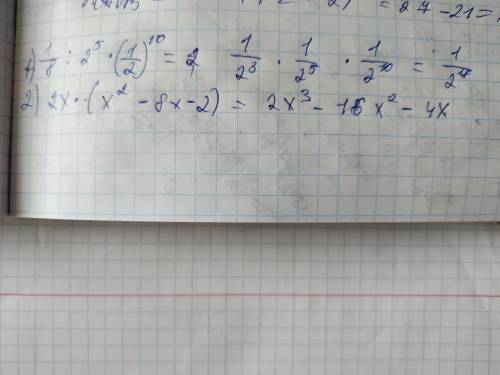 = 27 - 21 =
1) 1/8 : 2^5 · (1/2)^10 = 1/2^3 · 1/2^5 · 1/2^10 = 1/2
2) 2x · (x^2 - 8x - 2) = 2x^3 - 16x^2 - 4x